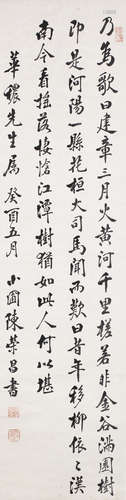 乃為歌曰建章三月火黃河千里槎若非金谷滿園樹
即是河陽一縣花桓大司馬聞而歎曰昔年移柳依依漢
南今看搖落悽愴江潭樹猶如此人何以堪
華穠先生屬 癸酉五月 小圃陳榮昌書